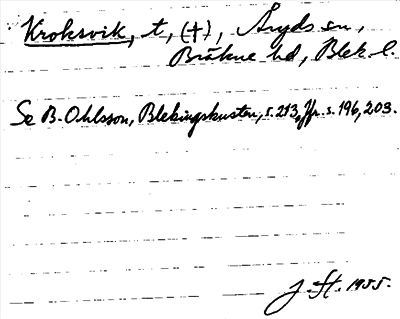 Kroksvik, t, (+), Åryds sn,
Bräkne hd, Blek. l.
Se B. Ohlsson, Blekingskusten, s. 213, Jfr. s. 196, 203.
J. St. 1955.